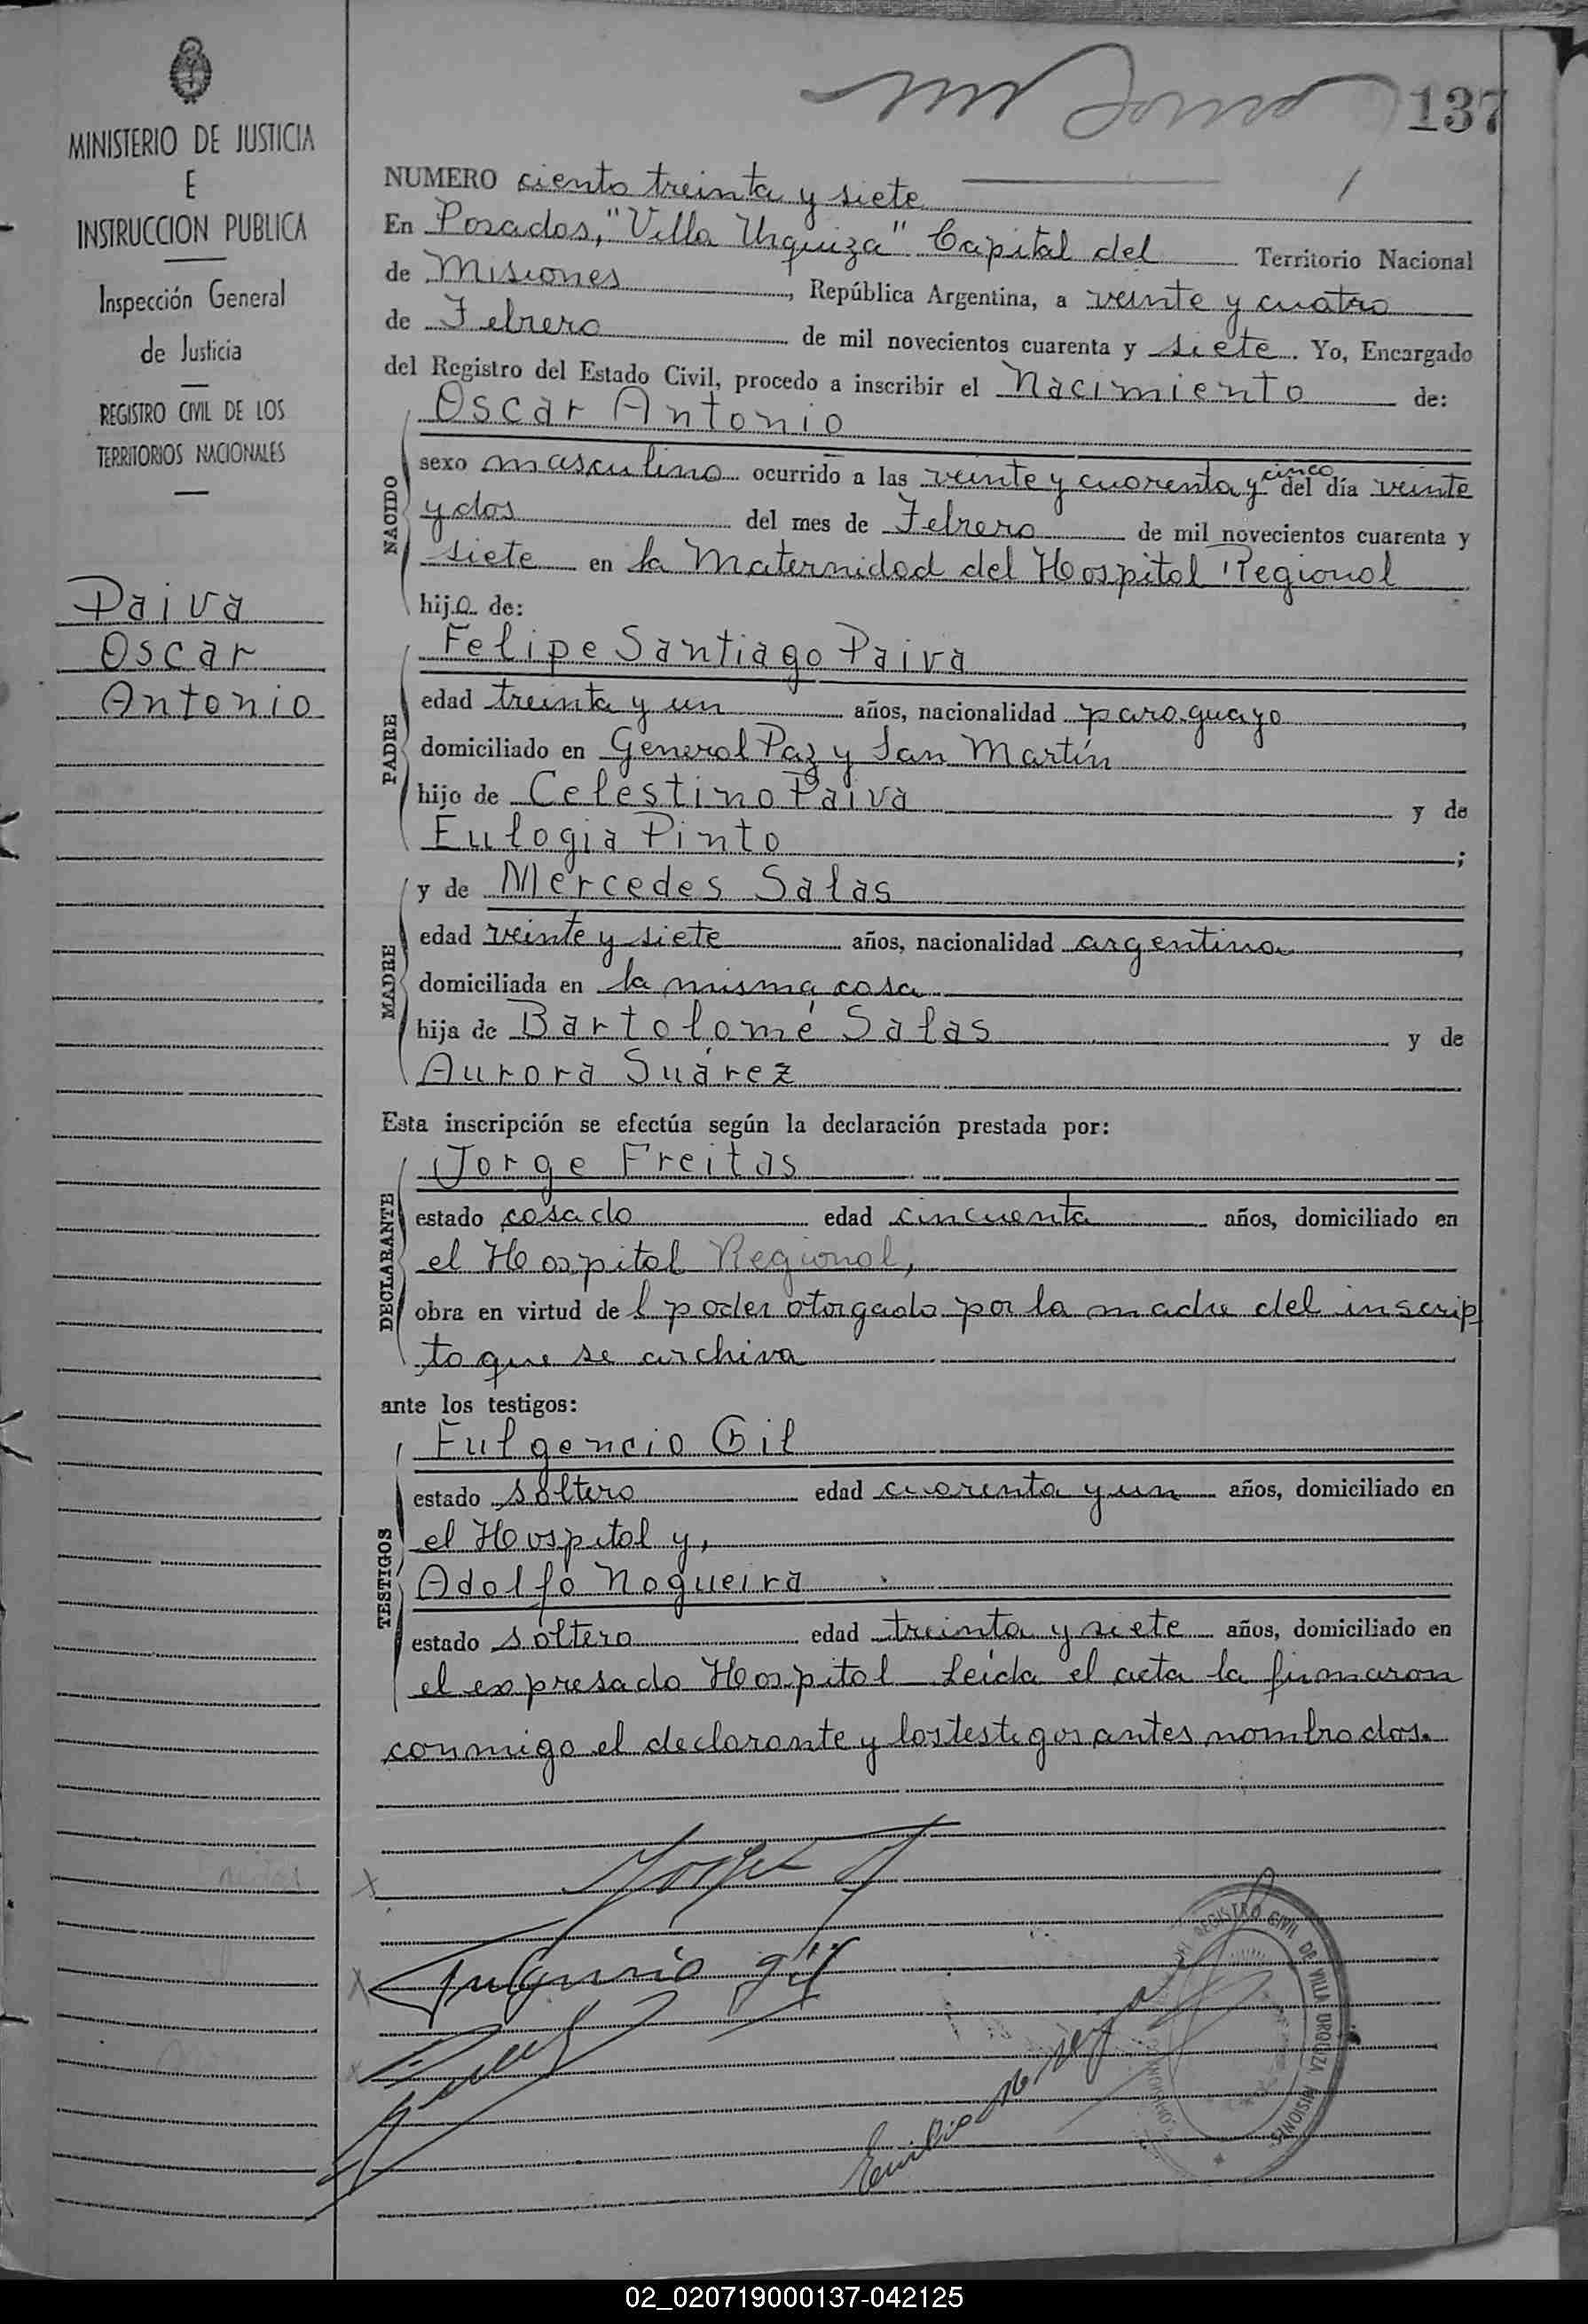 137
MINISTERIO DE JUSTICIA
E
INSTRUCCION PUBLICA
Inspección General
de Justicia
REGISTRO CIVIL DE LOS
TERRITORIOS NACIONALES
Paiva
Oscar
Antonio
NUMERO ciento treinta y siete
En Posadas, "Villa Urquiza" Capital del Territorio Nacional
de Misiones, República Argentina, a veinte y cuatro
de Febrero de mil novecientos cuarenta y siete. Yo, Encargado
del Registro del Estado Civil, procedo a inscribir el Nacimiento de:
NACIDO
Oscar Antonio
sexo masculino ocurrido a las veinte y cuarenta y cinco del día veinte
y dos del mes de Febrero de mil novecientos cuarenta y
siete en la Maternidad del Hospital Regional
hijo de:
PADRE
Felipe Santiago Paiva
edad treinta y un años, nacionalidad paraguayo,
domiciliado en General Paz y San Martín
hijo de Celestino Paiva y de
Eulogia Pinto;
MADRE
y de Mercedes Salas
edad veinte y siete años, nacionalidad argentina,
domiciliada en la misma casa
hija de Bartolomé Salas y de
Aurora Suárez
Esta inscripción se efectúa según la declaración prestada por:
DECLARANTE
Jorge Freitas
estado casado edad cincuenta años, domiciliado en
el Hospital Regional,
obra en virtud del poder otorgado por la madre del inscrip
to que se archiva
ante los testigos:
TESTIGOS
Fulgencio Gil
estado soltero edad cuarenta y un años, domiciliado en
el Hospital y,
Adolfo Nogueira
estado soltero edad treinta y siete años, domiciliado en
el expresado Hospital Leída el acta la firmaron
conmigo el declarante y los testigos antes nombrados.
Jorge
Fulgencio Gil
Emilio
REGISTRO CIVIL DE VILLA URQUIZA, MISIONES
02_020719000137-042125